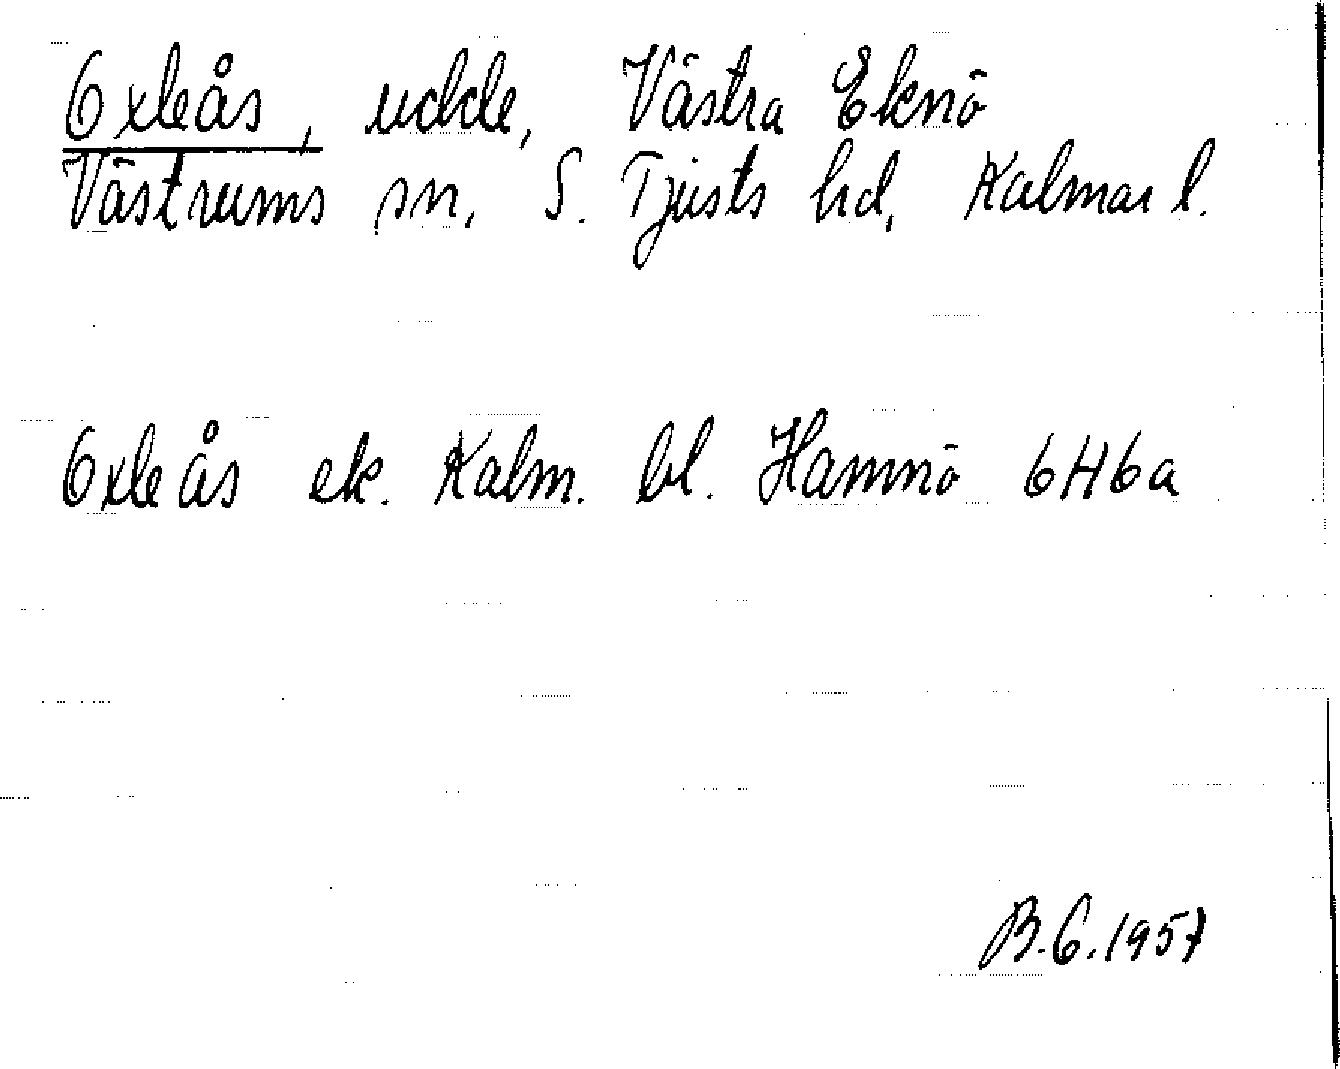 Oxleås, udde, Västra Eknö
Västrums sn, S. Tjusts hd, Kalmar l.
Oxleås ek. Kalm. bl. Hamnö 6H6a
B.O. 1957